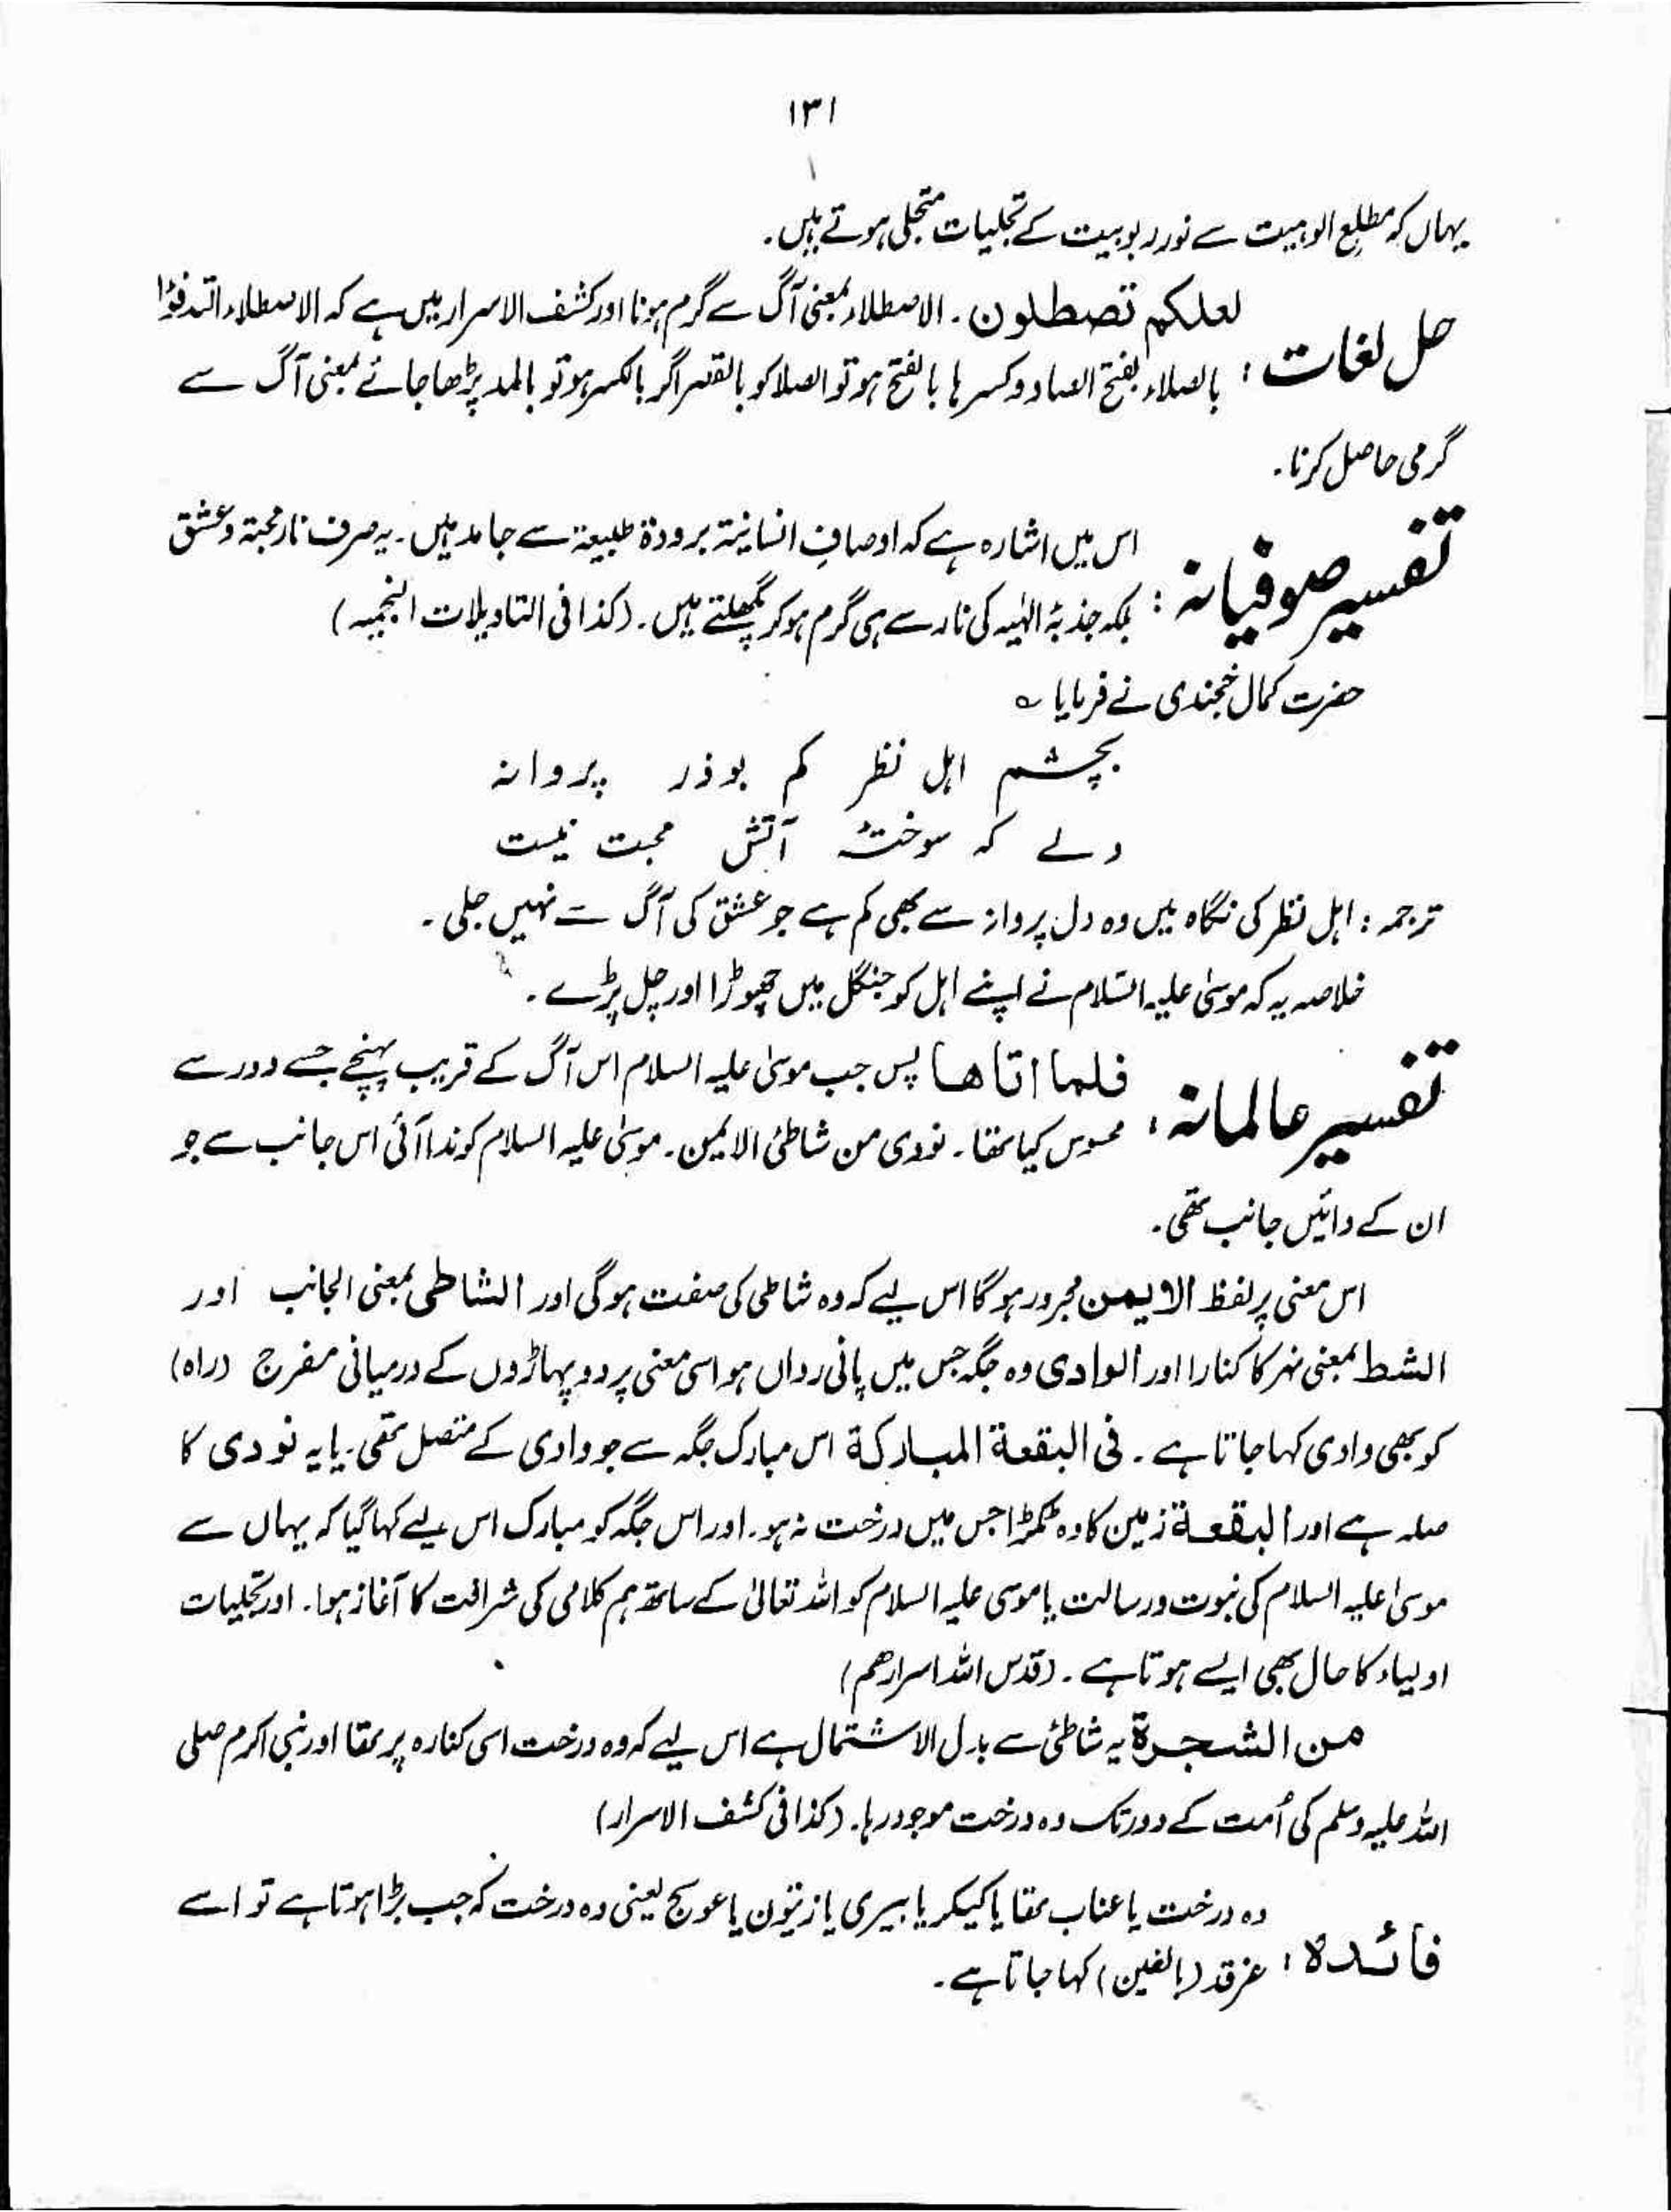 ۱۳۱
یہاں کہ مطلعِ الوہیت سے نور ربوبیت کے تجلیات متجلی ہوتے ہیں۔
حل لغات: لعلکم تصطلون۔ الاصطلاء بمعنی آگ سے گرم ہونا اور کشف الاسرار میں ہے کہ الاصطلاء التدفؤا
بالصلاء بفتح الصاد وکسرہا بالفتح ہو تو الصلا کو بالقصر اگر بالکسر ہو تو بالمد پڑھا جائے بمعنی آگ سے
گرمی حاصل کرنا۔
تفسیر صوفیانہ: اس میں اشارہ ہے کہ اوصافِ انسانیۃ برودۃ طبیعۃ سے جامد ہیں۔ یہ صرف نار محبۃ و عشق
بلکہ جذبۂ الٰہیہ کی نار سے ہی گرم ہو کر پگھلتے ہیں۔ (کذا فی التاویلات النجمیہ)
حضرت کمال خجندی نے فرمایا ؎
بچشم اہل نظر کم بوذر پروانہ
دلے کہ سوختۂ آتش محبت نیست
ترجمہ: اہل نظر کی نگاہ میں وہ دل پروانہ سے بھی کم ہے جو عشق کی آگ سے نہیں جلی۔
خلاصہ یہ کہ موسیٰ علیہ السّلام نے اپنے اہل کو جنگل میں چھوڑا اور چل پڑے۔
تفسیر عالمانہ: فلما اتاھا پس جب موسیٰ علیہ السلام اس آگ کے قریب پہنچے جسے دور سے
محسوس کیا تھا۔ نودی من شاطئ الایمن۔ موسیٰ علیہ السلام کو ندا آئی اس جانب سے جو
ان کے دائیں جانب تھی۔
اس معنی پر لفظ الایمن مجرور ہوگا اس لیے کہ وہ شاطی کی صفت ہوگی اور الشاطی بمعنی الجانب اور
الشط بمعنی نہر کا کنارا اور الوادی وہ جگہ جس میں پانی رواں ہو اسی معنی پر دو پہاڑوں کے درمیانی مفرج (راہ)
کو بھی وادی کہا جاتا ہے۔ فی البقعۃ المبارکۃ اس مبارک جگہ سے جو وادی کے متصل تھی۔ یا یہ نودی کا
صلہ ہے اور البقعۃ زمین کا وہ ٹکڑا جس میں درخت نہ ہو۔ اور اس جگہ کو مبارک اس لیے کہا گیا کہ یہاں سے
موسیٰ علیہ السلام کی نبوت و رسالت یا موسی علیہ السلام کو اللہ تعالیٰ کے ساتھ ہم کلامی کی شرافت کا آغاز ہوا۔ اور تجلیات
اولیاء کا حال بھی ایسے ہوتا ہے۔ (قدس اللہ اسرارھم)
من الشجرۃ یہ شاطئ سے بدل الاشتمال ہے اس لیے کہ وہ درخت اسی کنارہ پر تھا اور نبی اکرم صلی
اللہ علیہ وسلم کی اُمت کے دور تک وہ درخت موجود رہا۔ (کذا فی کشف الاسرار)
فائدہ: وہ درخت یا عناب تھا یا کیکر یا بیری یا زیتون یا عوسج یعنی وہ درخت کہ جب بڑا ہوتا ہے تو اسے
غرقد (بالغین) کہا جاتا ہے۔